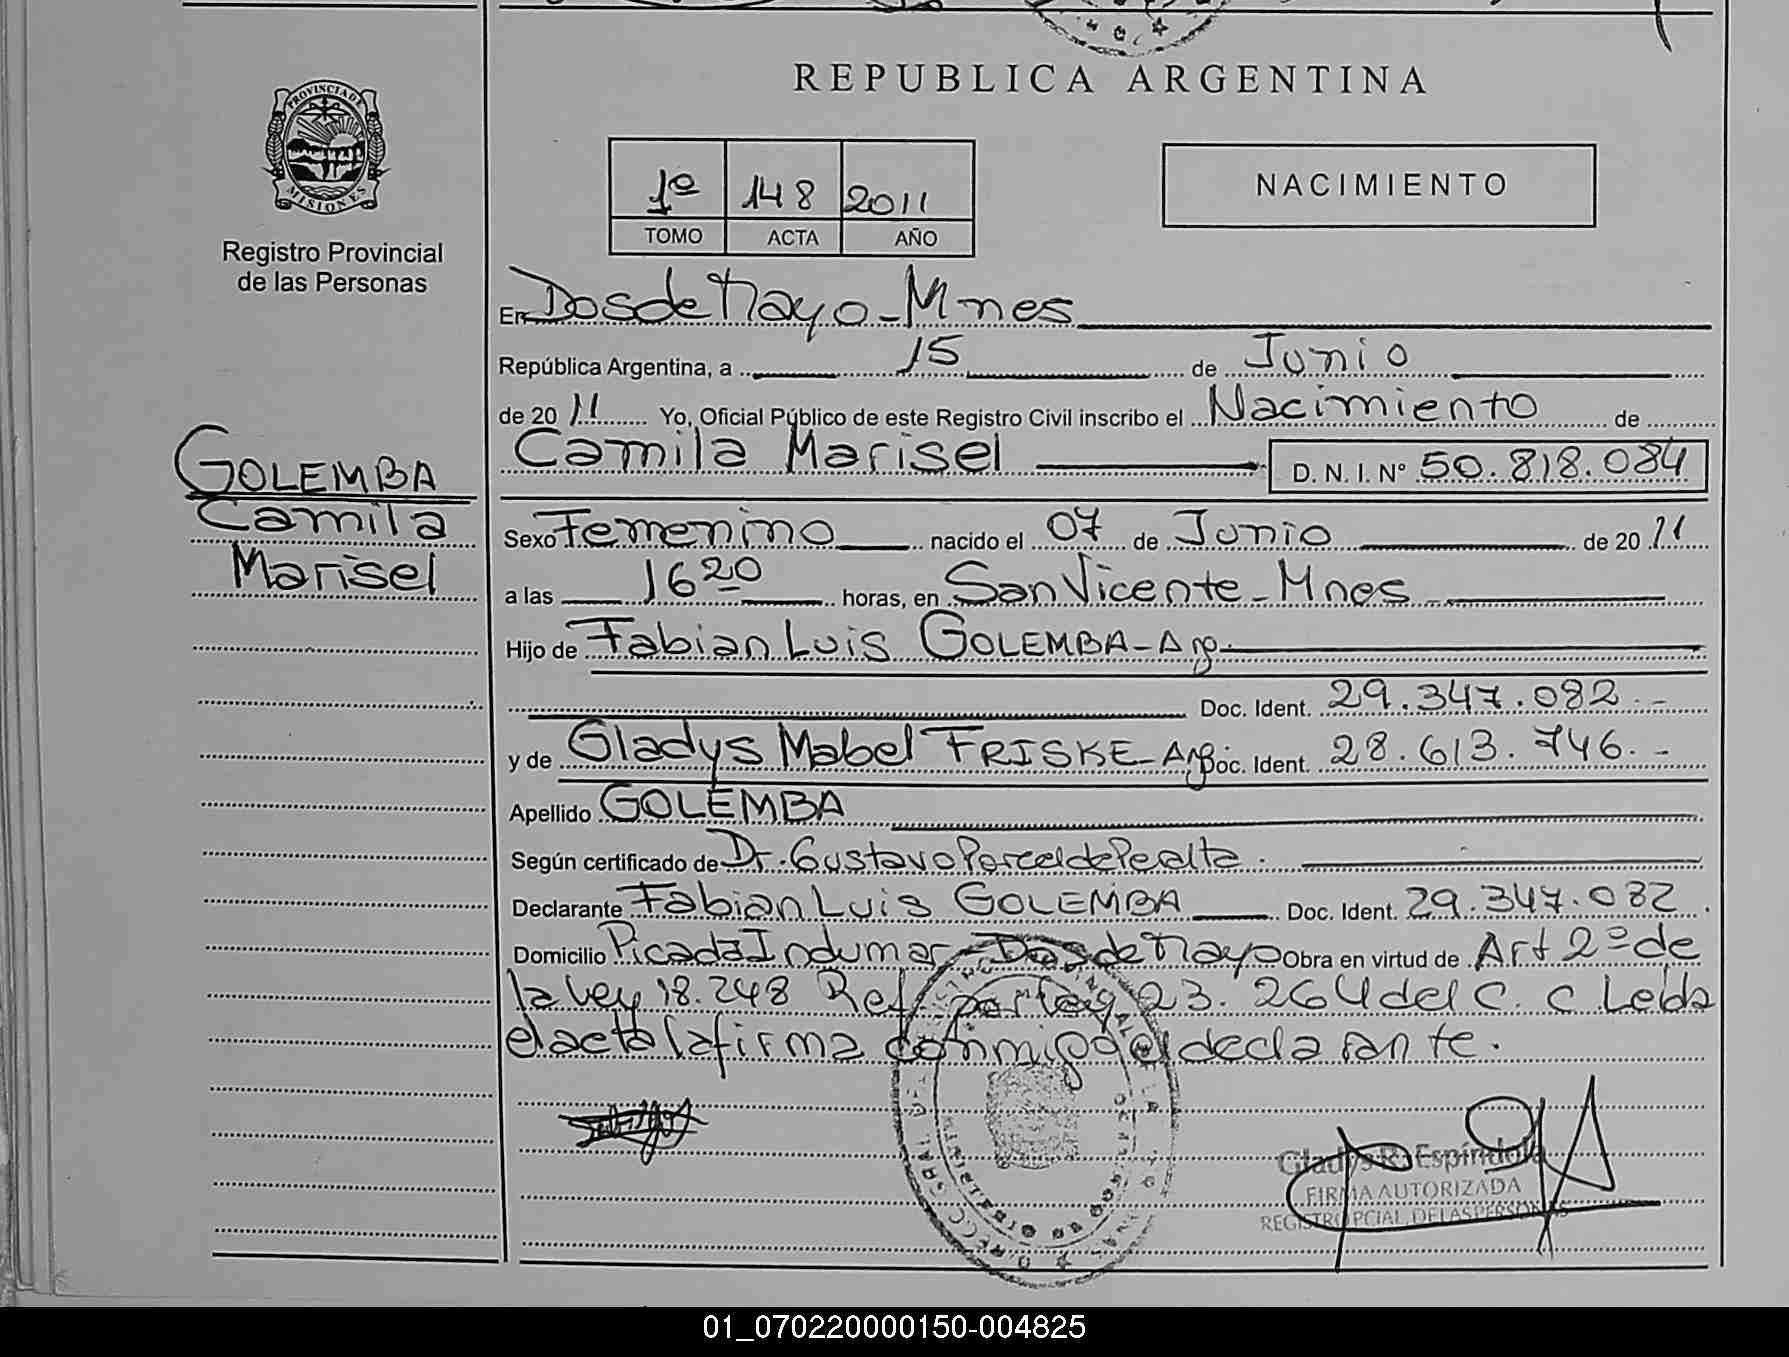 REPUBLICA ARGENTINA
PROVINCIA DE
MISIONES
Registro Provincial
de las Personas
1º 148 2011
TOMO ACTA AÑO
NACIMIENTO
En Dos de Mayo - Mnes
República Argentina, a 15 de Junio
de 2011 Yo, Oficial Público de este Registro Civil inscribo el Nacimiento de
Camila Marisel D. N. I. Nº 50.818.084
GOLEMBA
Camila
Marisel
Sexo Femenino nacido el 07 de Junio de 2011
a las 16 20 horas, en San Vicente - Mnes
Hijo de Fabian Luis GOLEMBA - Arg.
Doc. Ident. 29.347.082.-
y de Gladys Mabel FRISKE - Arg. Doc. Ident. 28.613.746.-
Apellido GOLEMBA
Según certificado de Dr. Gustavo Porcel de Peralta.
Declarante Fabian Luis GOLEMBA Doc. Ident. 29.347.082
Domicilio Picada Indumar - Dos de Mayo Obra en virtud de Art 2º de
la Ley 18.248 Ref. por ley 23.264 del C. C Leida
el acta la firma conmigo el declarante.
Gladys R. Espíndola
FIRMA AUTORIZADA
REGISTRO PCIAL. DE LAS PERSONAS
01_070220000150-004825